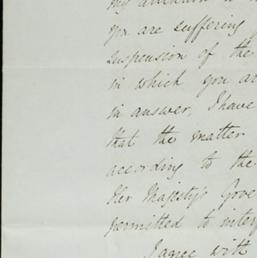 my attention to
you are suffering
suspension of the
in which you are
in answer, I have
that the matter
according to the
Her Majesty's Gove
permitted to interf
I agree with